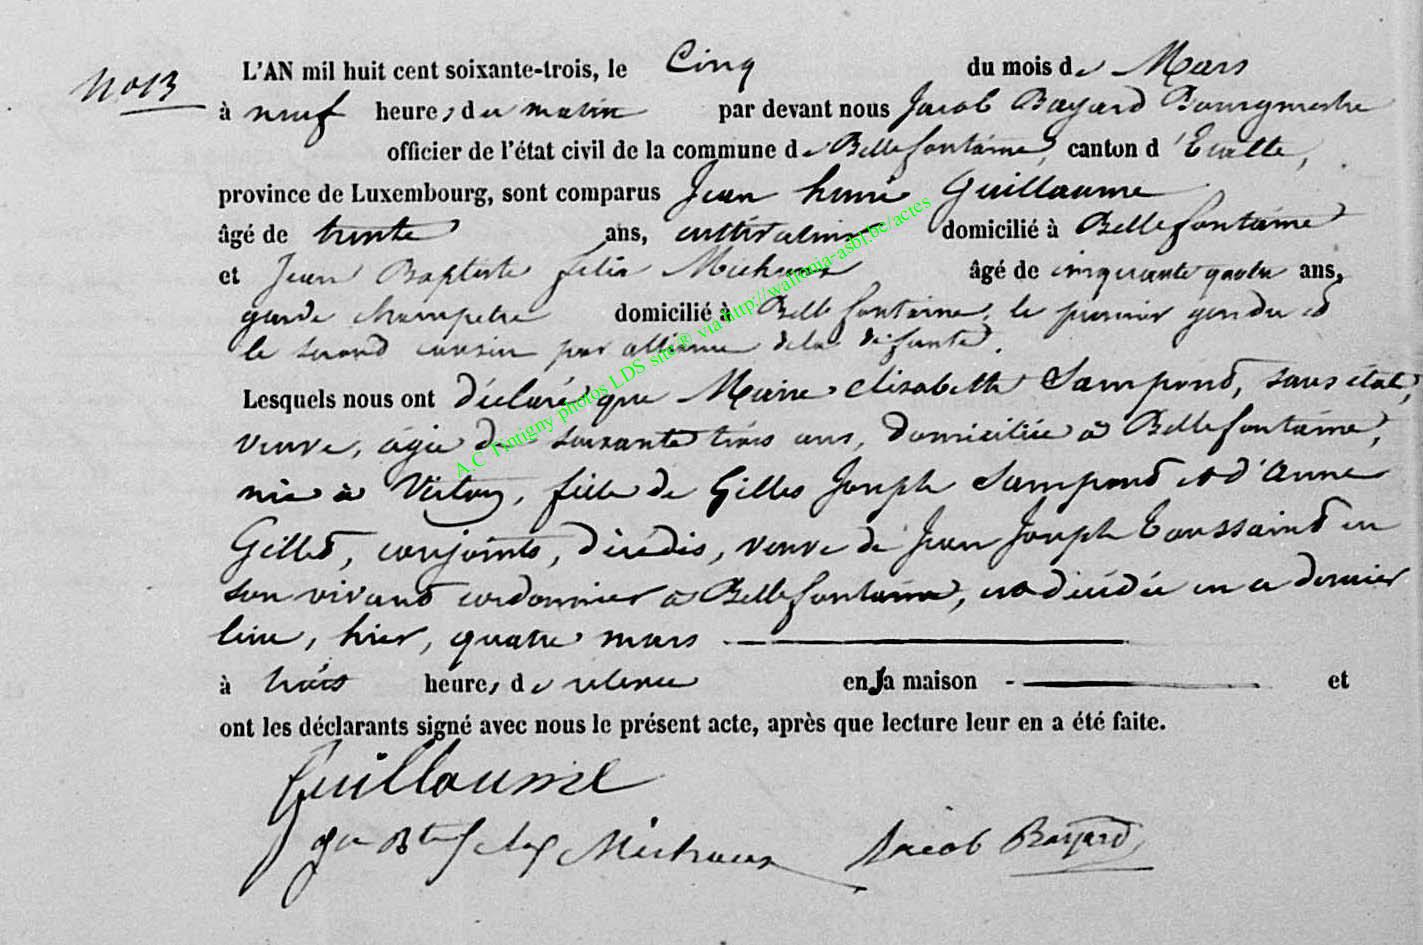 N° 13
L'AN mil huit cent soixante-trois, le Cinq du mois de Mars
à neuf heures du matin par devant nous Jacob Bayard Bourgmestre
officier de l'état civil de la commune de Bellefontaine, canton d'Etalle,
province de Luxembourg, sont comparus Jean henri Guillaume
âgé de trente ans, cultivateur domicilié à Bellefontaine
et Jean Baptiste felix Michaux âgé de cinquante quatre ans,
garde champetre domicilié à Bellefontaine, le premier gendre et
le second cousin par alliance de la défunte.
Lesquels nous ont déclaré que Marie elisabeth Sampont, sans état,
veuve, agée de soixante trois ans, domiciliée à Bellefontaine,
née à Virton, fille de Gilles Joseph Sampont et d'Anne
Gillet, conjoints, décédés, veuve de Jean Joseph Toussaint en
son vivant cordonnier à Bellefontaine, est décédée en ce dernier
lieu, hier, quatre mars
à trois heures de relevée en sa maison et
ont les déclarants signé avec nous le présent acte, après que lecture leur en a été faite.
Guillaume
Michaux Jacob Bayard
A.C Tintigny photos LDS site® via http://wallonia-asbl.be/actes